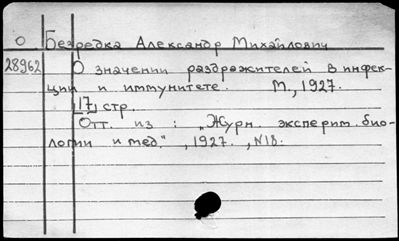 О Безредка Александр Михайлович
28962 О значении раздражителей в инфек-
ции и иммунитете. М., 1927.
[17] стр.
Отт. из: „Журн. эксперим. био-
логии и мед", 1927., №18.